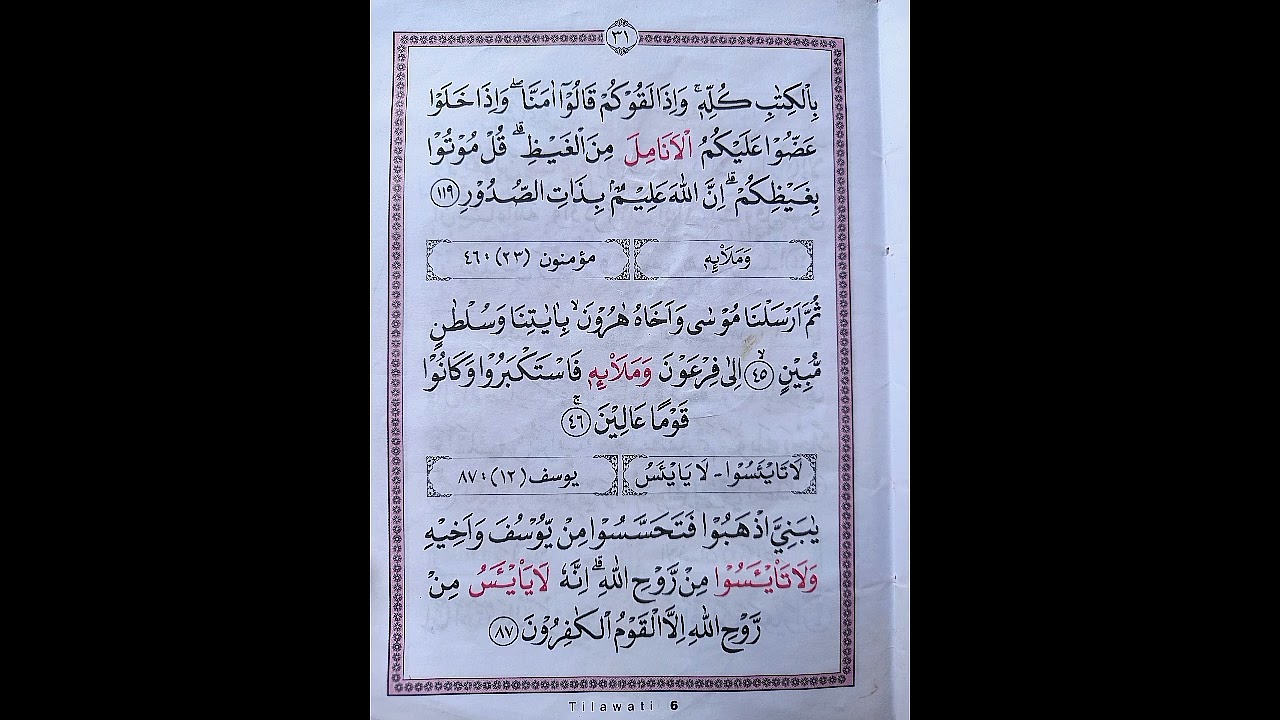 ٣١
بِالْكِتٰبِ كُلِّهٖ ۚ وَاِذَا لَقُوْكُمْ قَالُوْٓا اٰمَنَّا ۖ وَاِذَا خَلَوْا
عَضُّوْا عَلَيْكُمُ الْاَنَامِلَ مِنَ الْغَيْظِ ۗ قُلْ مُوْتُوْا
بِغَيْظِكُمْ ۗ اِنَّ اللّٰهَ عَلِيْمٌۢ بِذَاتِ الصُّدُوْرِ ١١٩
وَمَلَا۟ىِٕهٖ مؤمنون (٢٣) : ٤٦
ثُمَّ اَرْسَلْنَا مُوْسٰى وَاَخَاهُ هٰرُوْنَ ۙ بِاٰيٰتِنَا وَسُلْطٰنٍ
مُّبِيْنٍ ۙ ٤٥ اِلٰى فِرْعَوْنَ وَمَلَا۟ىِٕهٖ فَاسْتَكْبَرُوْا وَكَانُوْا
قَوْمًا عَالِيْنَ ۚ ٤٦
لَا تَا۟يْـَٔسُوْا - لَا يَا۟يْـَٔسُ يوسف (١٢) : ٨٧
يٰبَنِيَّ اذْهَبُوْا فَتَحَسَّسُوْا مِنْ يُّوْسُفَ وَاَخِيْهِ
وَلَا تَا۟يْـَٔسُوْا مِنْ رَّوْحِ اللّٰهِ ۗ اِنَّهٗ لَا يَا۟يْـَٔسُ مِنْ
رَّوْحِ اللّٰهِ اِلَّا الْقَوْمُ الْكٰفِرُوْنَ ٨٧
Tilawati 6